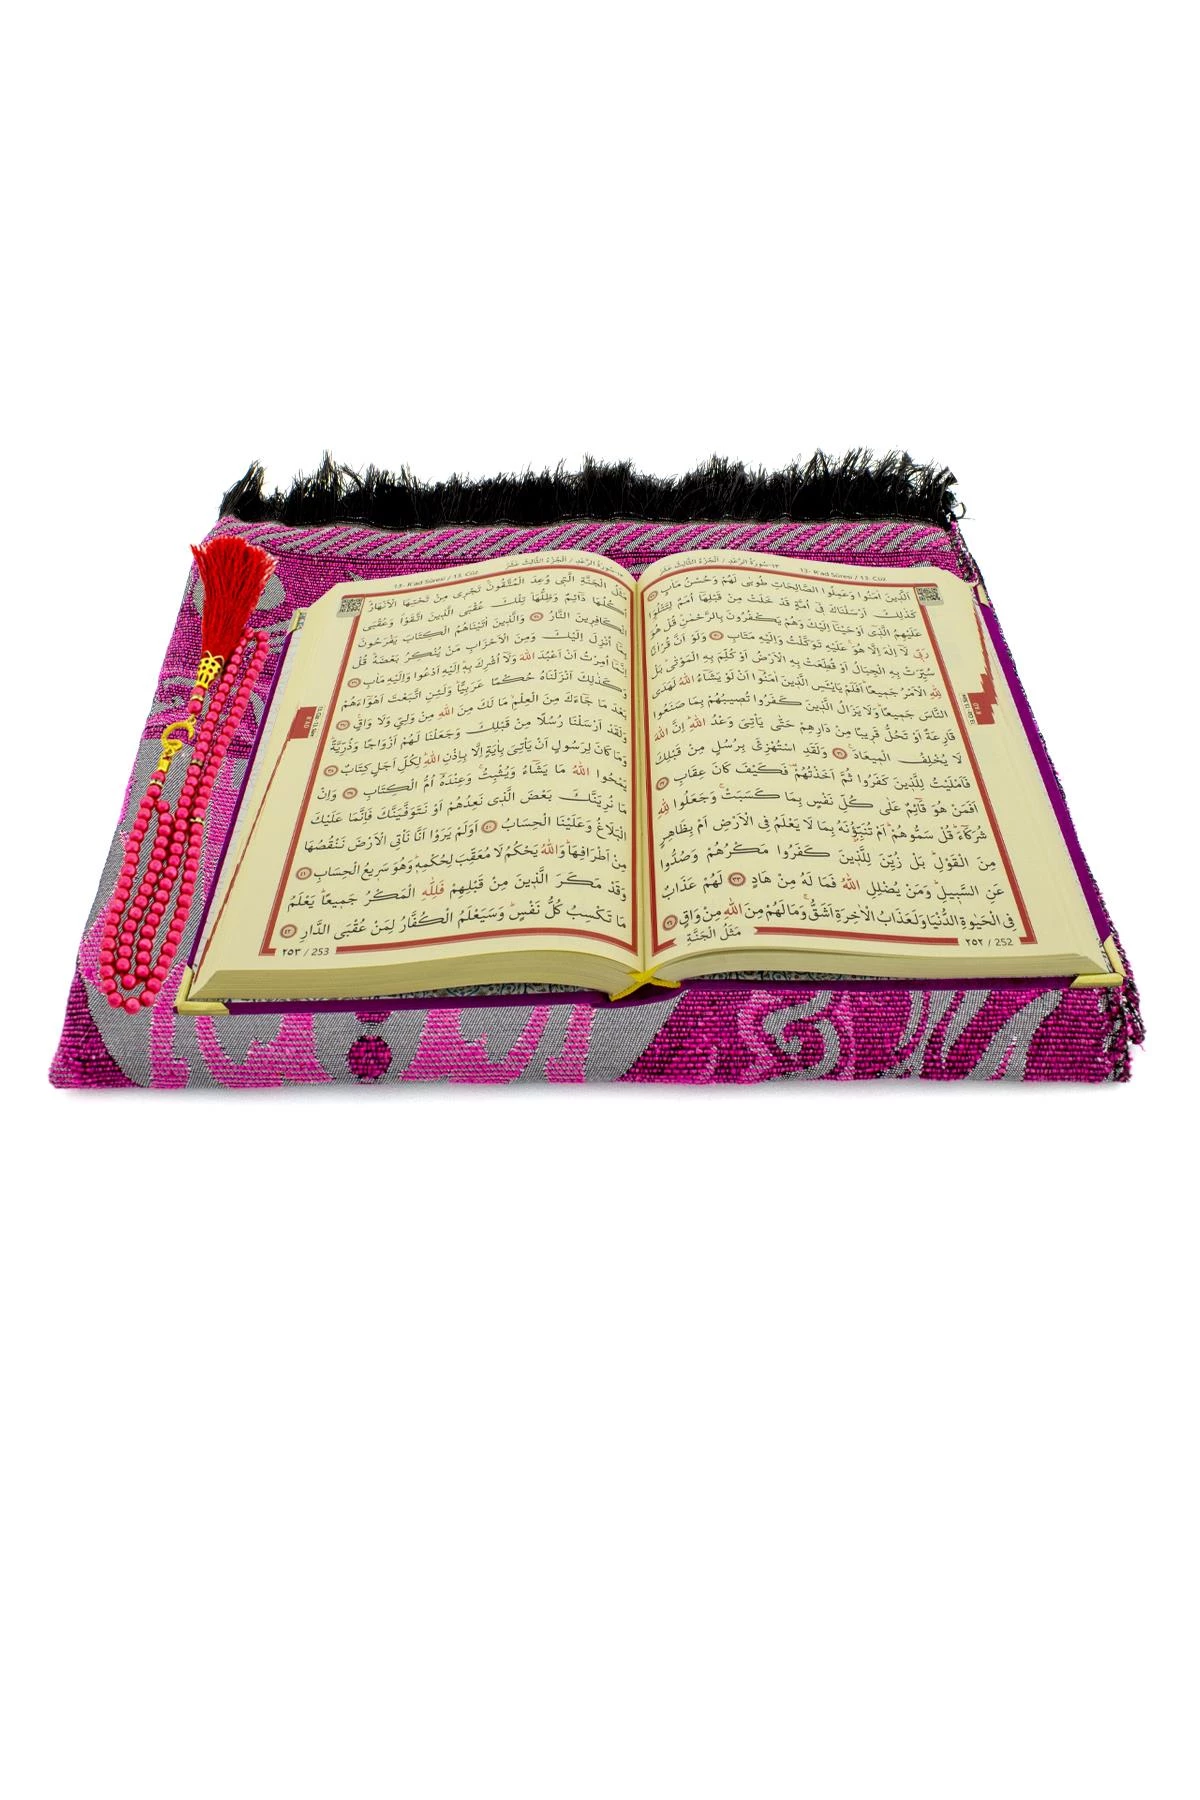 ١٣-سُورَةُ الرَّعْدِ / اَلْجُزْءُ الثَّالِثَ عَشَرَ
13- R'ad Sûresi / 13. Cüz
اَلَّذ۪ينَ اٰمَنُوا وَعَمِلُوا الصَّالِحَاتِ طُوبٰى لَهُمْ وَحُسْنُ مَاٰبٍ ٢٩
كَذٰلِكَ اَرْسَلْنَاكَ ف۪ٓي اُمَّةٍ قَدْ خَلَتْ مِنْ قَبْلِهَٓا اُمَمٌ لِتَتْلُوَ۬ا
عَلَيْهِمُ الَّذ۪ٓي اَوْحَيْنَٓا اِلَيْكَ وَهُمْ يَكْفُرُونَ بِالرَّحْمٰنِۜ قُلْ هُوَ
رَبّ۪ي لَٓا اِلٰهَ اِلَّا هُوَۚ عَلَيْهِ تَوَكَّلْتُ وَاِلَيْهِ مَتَابِ ٣٠ وَلَوْ اَنَّ قُرْاٰنًا
سُيِّرَتْ بِهِ الْجِبَالُ اَوْ قُطِّعَتْ بِهِ الْاَرْضُ اَوْ كُلِّمَ بِهِ الْمَوْتٰىۜ بَلْ
لِلّٰهِ الْاَمْرُ جَم۪يعًاۜ اَفَلَمْ يَا۬يْـَٔسِ الَّذ۪ينَ اٰمَنُٓوا اَنْ لَوْ يَشَٓاءُ اللّٰهُ لَهَدَى
النَّاسَ جَم۪يعًاۜ وَلَا يَزَالُ الَّذ۪ينَ كَفَرُوا تُص۪يبُهُمْ بِمَا صَنَعُوا
قَارِعَةٌ اَوْ تَحُلُّ قَر۪يبًا مِنْ دَارِهِمْ حَتّٰى يَأْتِيَ وَعْدُ اللّٰهِۜ اِنَّ اللّٰهَ
لَا يُخْلِفُ الْم۪يعَادَ۟ ٣١ وَلَقَدِ اسْتُهْزِئَ بِرُسُلٍ مِنْ قَبْلِكَ
فَاَمْلَيْتُ لِلَّذ۪ينَ كَفَرُوا ثُمَّ اَخَذْتُهُمْ۠ فَكَيْفَ كَانَ عِقَابِ ٣٢
اَفَمَنْ هُوَ قَٓائِمٌ عَلٰى كُلِّ نَفْسٍ بِمَا كَسَبَتْۚ وَجَعَلُوا لِلّٰهِ
شُرَكَٓاءَۜ قُلْ سَمُّوهُمْۜ اَمْ تُنَبِّؤُ۫نَهُ بِمَا لَا يَعْلَمُ فِي الْاَرْضِ اَمْ بِظَاهِرٍ
مِنَ الْقَوْلِۜ بَلْ زُيِّنَ لِلَّذ۪ينَ كَفَرُوا مَكْرُهُمْ وَصُدُّوا
عَنِ السَّب۪يلِۜ وَمَنْ يُضْلِلِ اللّٰهُ فَمَا لَهُ مِنْ هَادٍ ٣٣ لَهُمْ عَذَابٌ
فِي الْحَيٰوةِ الدُّنْيَا وَلَعَذَابُ الْاٰخِرَةِ اَشَقُّۚ وَمَا لَهُمْ مِنَ اللّٰهِ مِنْ وَاقٍ ٣٤
مَثَلُ الْجَنَّةِ
٢٥٢ / 252
١٣-سُورَةُ الرَّعْدِ / اَلْجُزْءُ الثَّالِثَ عَشَرَ
13- R'ad Sûresi / 13. Cüz
مَثَلُ الْجَنَّةِ الَّت۪ي وُعِدَ الْمُتَّقُونَۜ تَجْر۪ي مِنْ تَحْتِهَا الْاَنْهَارُۜ
اُكُلُهَا دَٓائِمٌ وَظِلُّهَاۜ تِلْكَ عُقْبَى الَّذ۪ينَ اتَّقَوْاۗ وَعُقْبَى
الْكَافِر۪ينَ النَّارُ ٣٥ وَالَّذ۪ينَ اٰتَيْنَاهُمُ الْكِتَابَ يَفْرَحُونَ
بِمَٓا اُنْزِلَ اِلَيْكَ وَمِنَ الْاَحْزَابِ مَنْ يُنْكِرُ بَعْضَهُۜ قُلْ
اِنَّمَٓا اُمِرْتُ اَنْ اَعْبُدَ اللّٰهَ وَلَٓا اُشْرِكَ بِه۪ۜ اِلَيْهِ اَدْعُوا وَاِلَيْهِ مَاٰبِ ٣٦
وَكَذٰلِكَ اَنْزَلْنَاهُ حُكْمًا عَرَبِيًّاۜ وَلَئِنِ اتَّبَعْتَ اَهْوَٓاءَهُمْ
بَعْدَ مَا جَٓاءَكَ مِنَ الْعِلْمِۙ مَا لَكَ مِنَ اللّٰهِ مِنْ وَلِيٍّ وَلَا وَاقٍ۟ ٣٧
وَلَقَدْ اَرْسَلْنَا رُسُلًا مِنْ قَبْلِكَ وَجَعَلْنَا لَهُمْ اَزْوَاجًا وَذُرِّيَّةًۜ
وَمَا كَانَ لِرَسُولٍ اَنْ يَأْتِيَ بِاٰيَةٍ اِلَّا بِاِذْنِ اللّٰهِۜ لِكُلِّ اَجَلٍ كِتَابٌ ٣٨
يَمْحُوا اللّٰهُ مَا يَشَٓاءُ وَيُثْبِتُۚ وَعِنْدَهُٓ اُمُّ الْكِتَابِ ٣٩ وَاِنْ
مَا نُرِيَنَّكَ بَعْضَ الَّذ۪ي نَعِدُهُمْ اَوْ نَتَوَفَّيَنَّكَ فَاِنَّمَا عَلَيْكَ
الْبَلَاغُ وَعَلَيْنَا الْحِسَابُ ٤٠ اَوَلَمْ يَرَوْا اَنَّا نَأْتِي الْاَرْضَ نَنْقُصُهَا
مِنْ اَطْرَافِهَاۜ وَاللّٰهُ يَحْكُمُ لَا مُعَقِّبَ لِحُكْمِه۪ۜ وَهُوَ سَر۪يعُ الْحِسَابِ ٤١
وَقَدْ مَكَرَ الَّذ۪ينَ مِنْ قَبْلِهِمْ فَلِلّٰهِ الْمَكْرُ جَم۪يعًاۜ يَعْلَمُ
مَا تَكْسِبُ كُلُّ نَفْسٍۜ وَسَيَعْلَمُ الْكُفَّارُ لِمَنْ عُقْبَى الدَّارِ ٤٢
٢٥٣ / 253